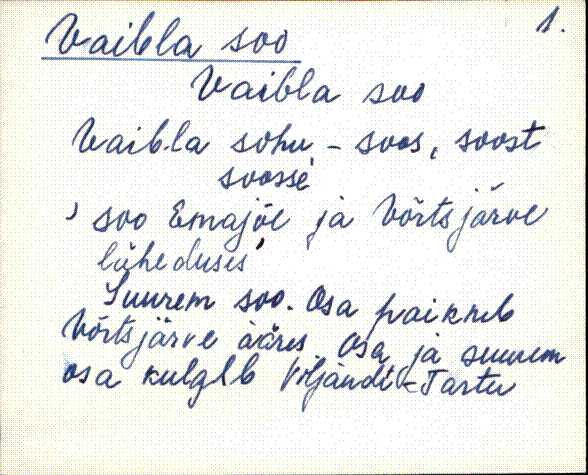 1.
Vaibla soo
Vaibla soo
Vaibla sohu - soos, soost
soosse
' soo Emajõe ja Võrtsjärve
läheduses'
Suurem soo. Osa paikneb
Võrtsjärve ääres Osa ja suurem
osa kulgeb Viljandi-Tartu